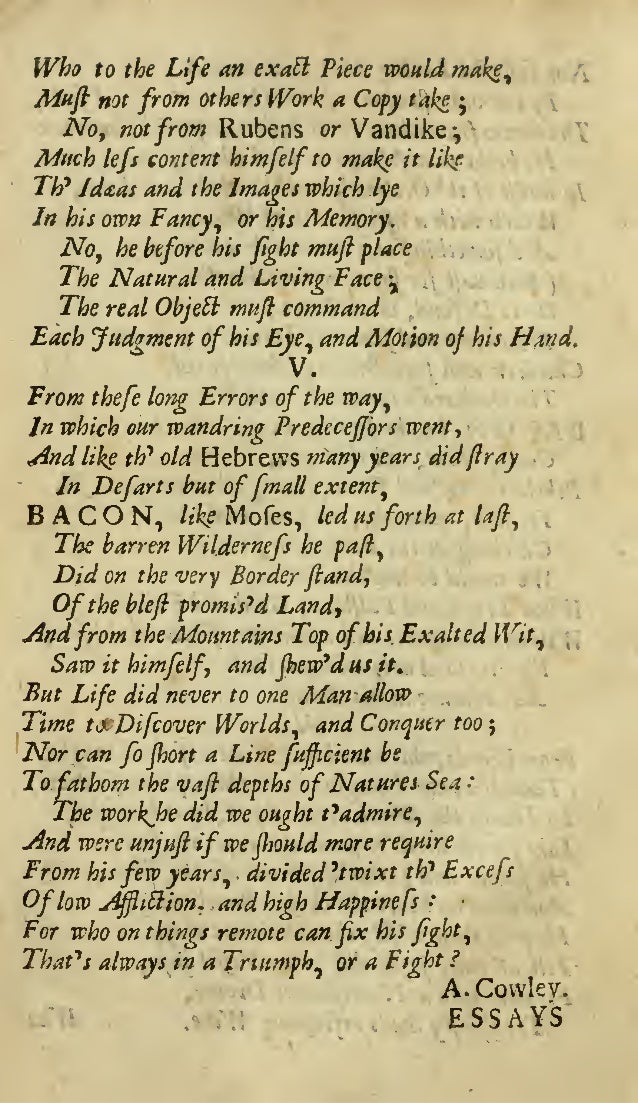 Who to the Life an exact Piece would make,
Muſt not from others Work a Copy take;
No, not from Rubens or Vandike;
Much leſs content himſelf to make it like
Th' Idæas and the Images which lye
In his own Fancy, or his Memory.
No, he before his ſight muſt place
The Natural and Living Face;
The real Object muſt command
Each Judgment of his Eye, and Motion of his Hand.
V.
From theſe long Errors of the way,
In which our wandring Predeceſſors went,
And like th' old Hebrews many years did ſtray
In Deſarts but of ſmall extent,
BACON, like Moſes, led us forth at laſt,
The barren Wilderneſs he paſt,
Did on the very Border ſtand,
Of the bleſt promis'd Land,
And from the Mountains Top of his Exalted Wit,
Saw it himſelf, and ſhew'd us it.
But Life did never to one Man allow
Time to Diſcover Worlds, and Conquer too;
Nor can ſo ſhort a Line ſufficient be
To fathom the vaſt depths of Natures Sea:
The work he did we ought t'admire,
And were unjuſt if we ſhould more require
From his few years, divided 'twixt th' Exceſs
Of low Affliction, and high Happineſs:
For who on things remote can fix his ſight,
That's always in a Triumph, or a Fight?
A. Cowley.
ESSAYS